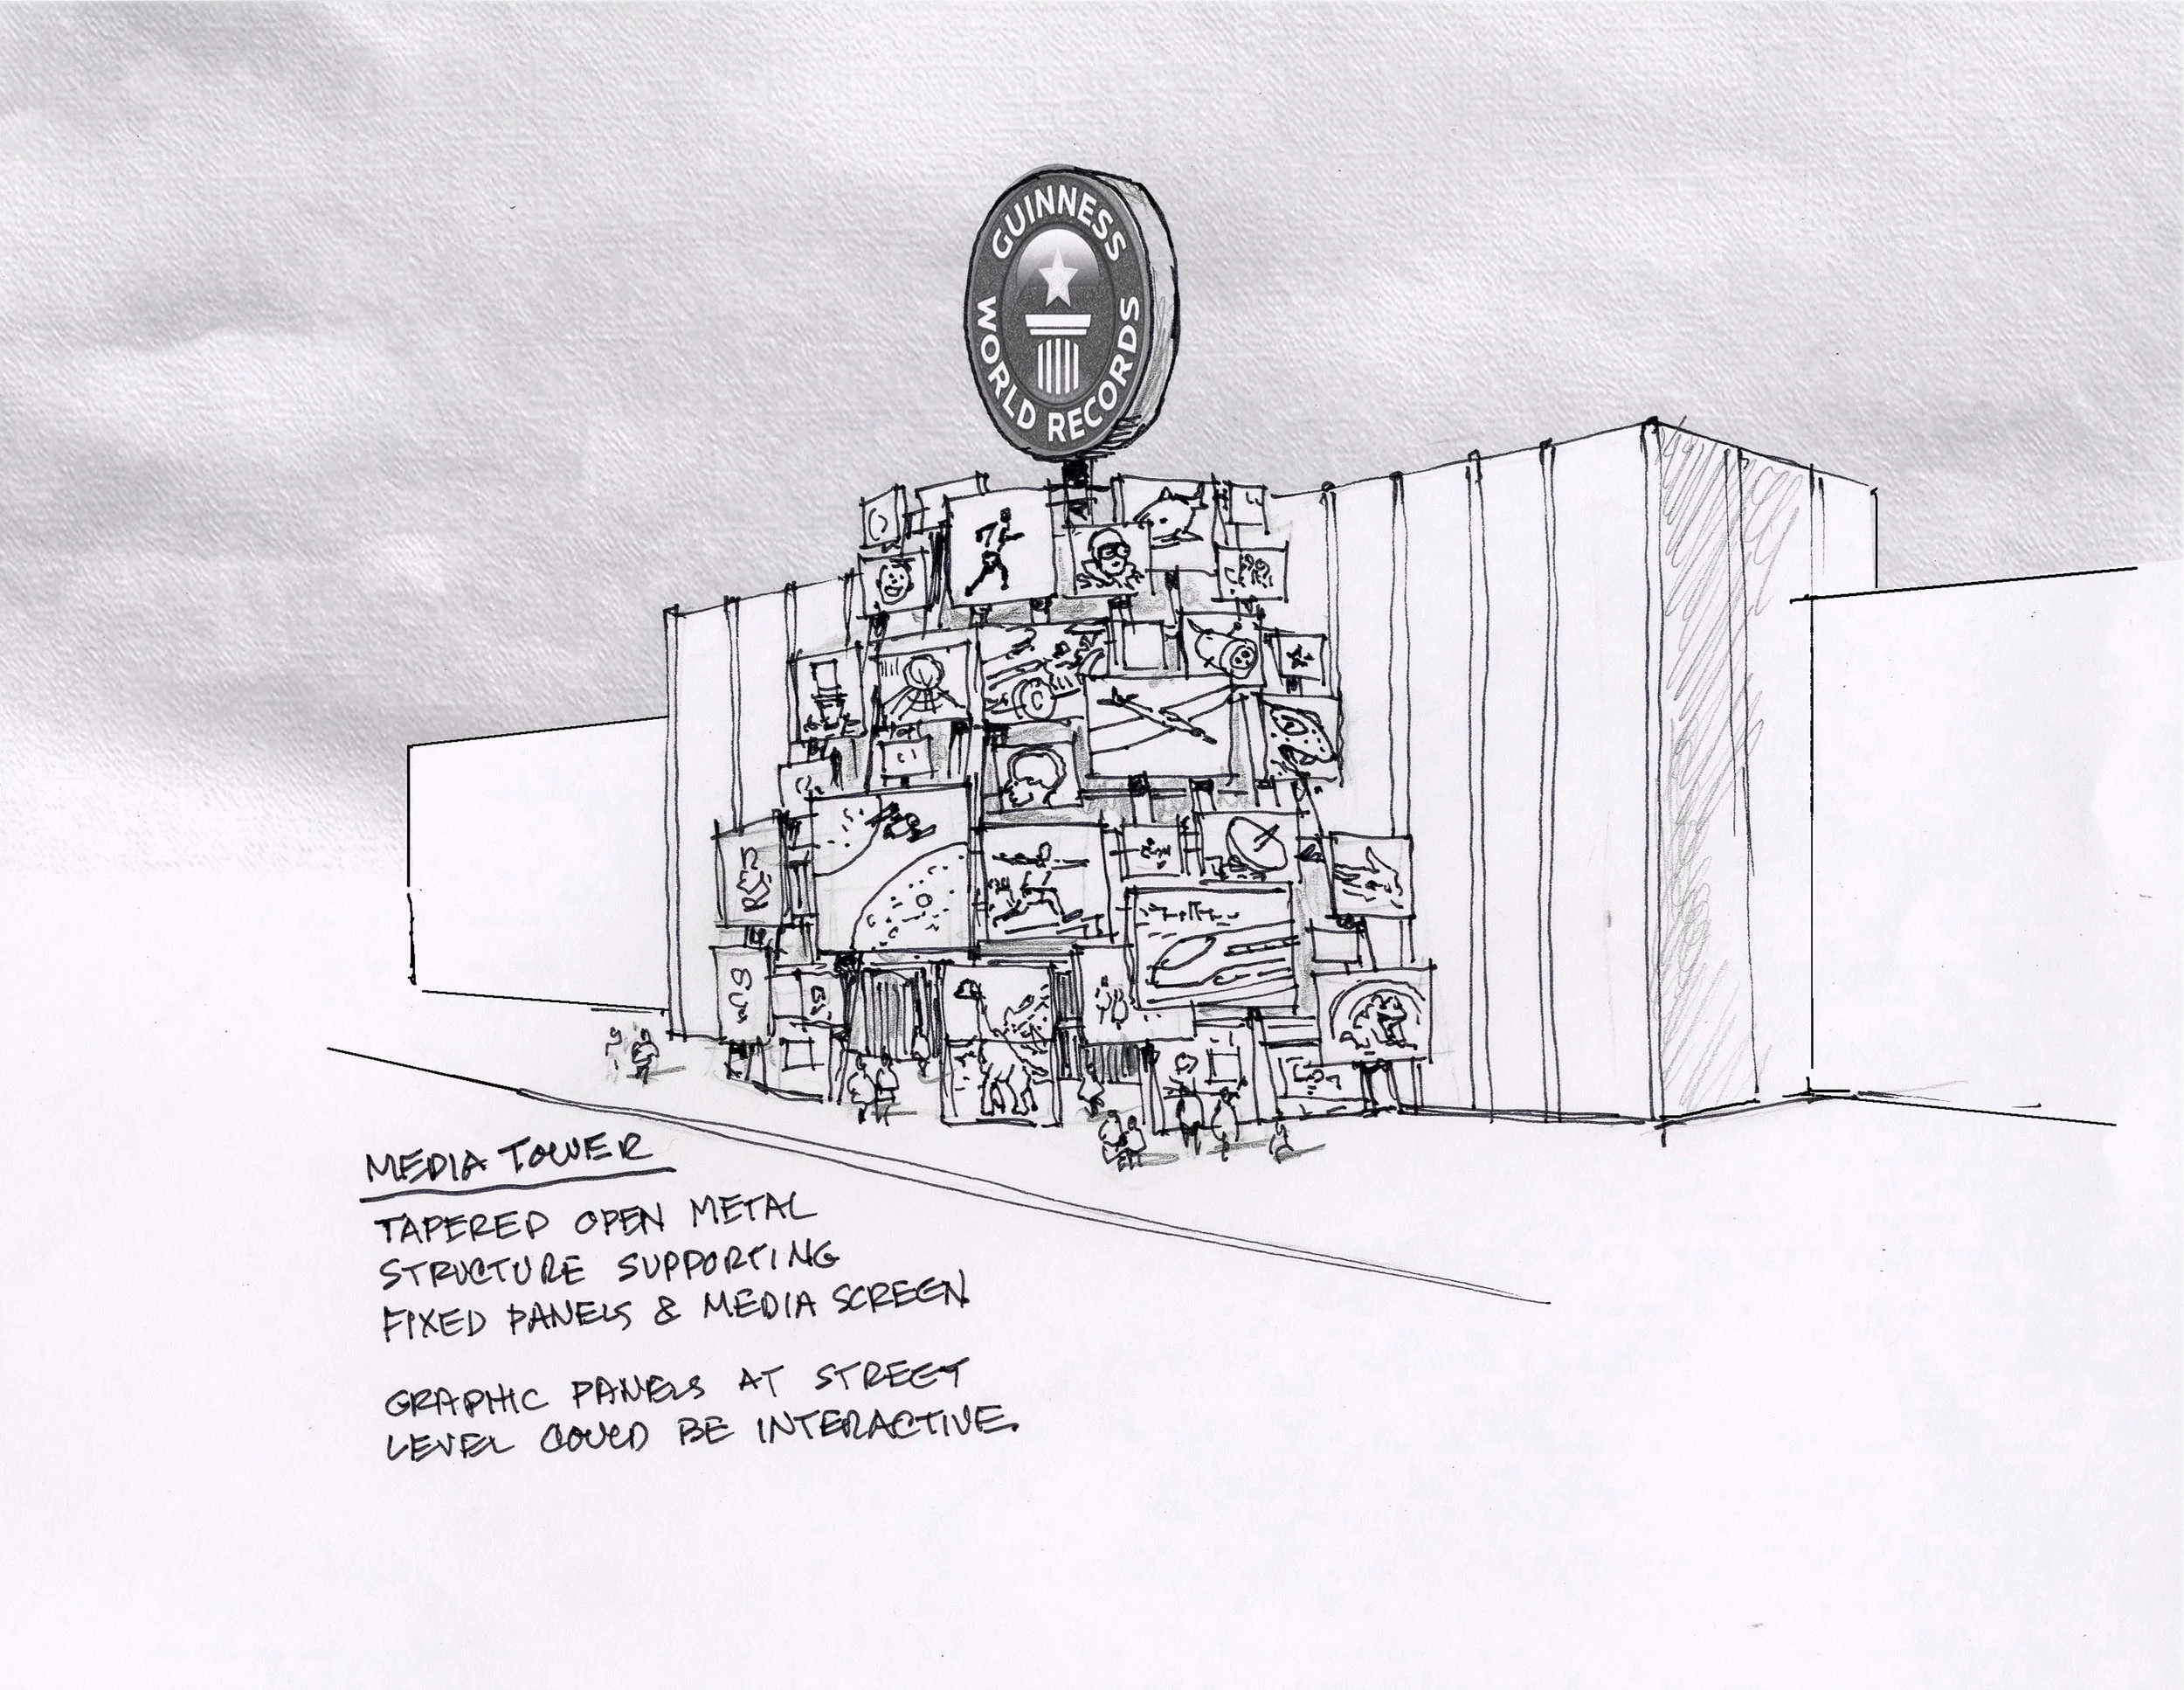 GUINNESS
WORLD RECORDS
MEDIA TOWER
TAPERED OPEN METAL
STRUCTURE SUPPORTING
FIXED PANELS & MEDIA SCREEN
GRAPHIC PANELS AT STREET
LEVEL COULD BE INTERACTIVE.